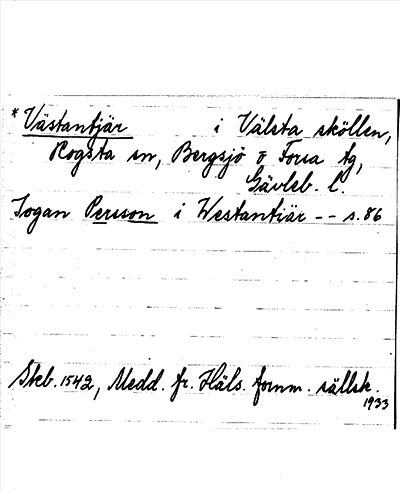 * Västantjär i Välsta sköllen,
Rogsta sn, Bergsjö o Forsa tg,
Gävleb. l.
Jogan Persson i Westantiär -- s. 86
Skb. 1542, Medd. fr. Häls. fornm. sällsk.
1933